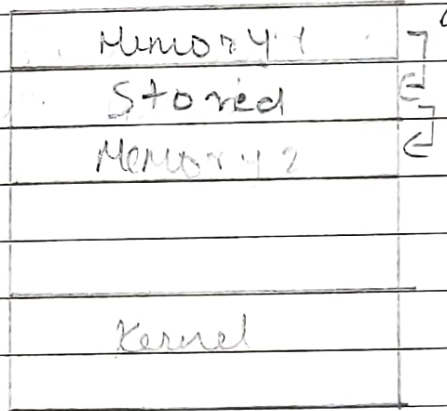 Memory 1
Stored
Memory 2
Kernel